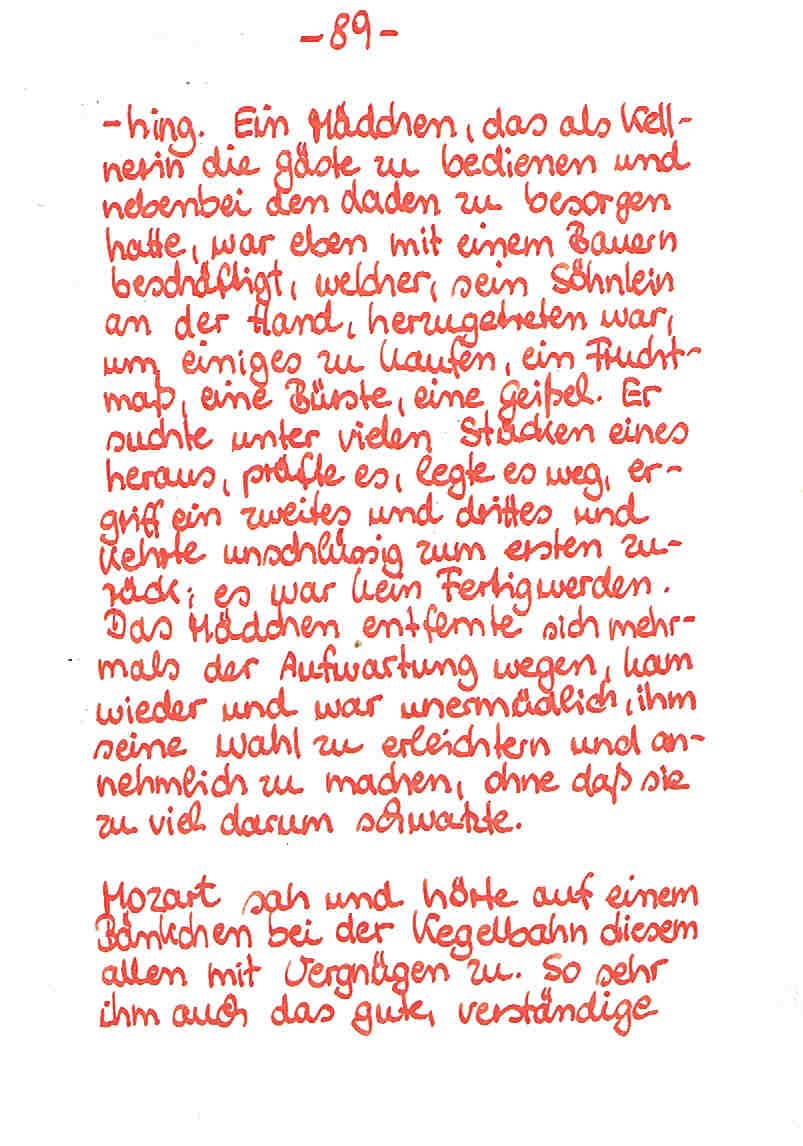 -89-
-hing. Ein Mädchen, das als Kell-
nerin die gäste zu bedienen und
nebenbei den daden zu besorgen
hatte, war eben mit einem Bauern
beschäftigt, welcher, sein Söhnlein
an der Hand, herzugetreten war,
um einiges zu kaufen, ein Frucht-
maß, eine Bürste, eine Geißel. Er
suchte unter vielen Stücken eines
heraus, prüfte es, legte es weg, er-
griff ein zweites und drittes und
kehrte unschlüssig zum ersten zu-
rück; es war kein Fertigwerden.
Das Mädchen entfernte sich mehr-
mals der Aufwartung wegen, kam
wieder und war unermüdlich, ihm
seine Wahl zu erleichtern und an-
nehmlich zu machen, ohne daß sie
zu viel darum schwatzte.
Mozart sah und hörte auf einem
Bänkchen bei der Kegelbahn diesem
allen mit Vergnügen zu. So sehr
ihm auch das gute, verständige